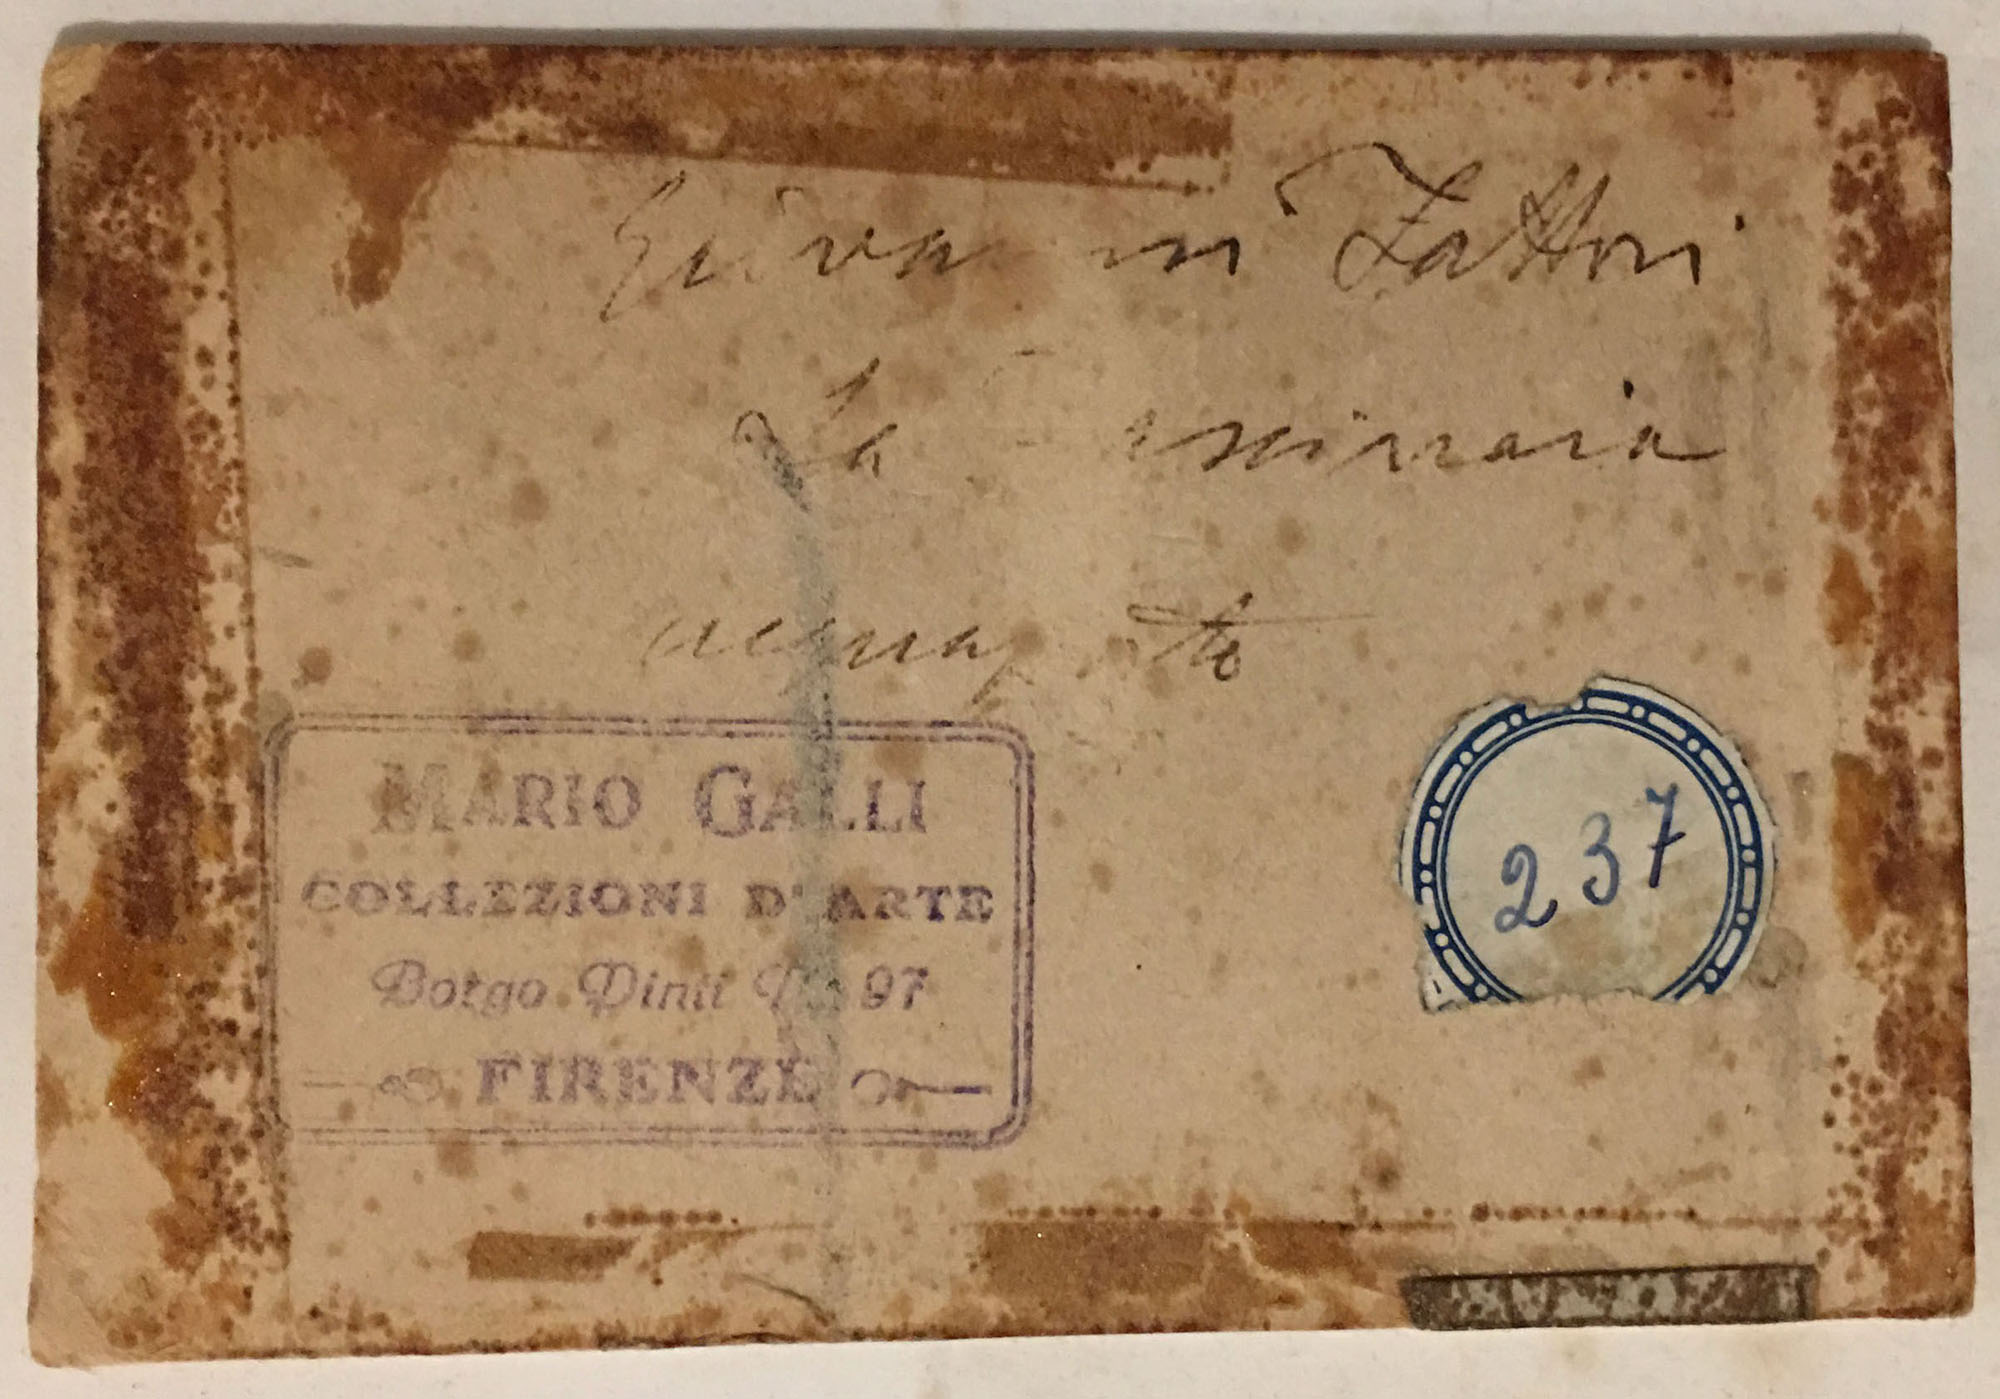 Giovanni Fattori
La
acquaforte
MARIO GALLI
COLLEZIONI D'ARTE
Borgo Pinti No 97
FIRENZE
237